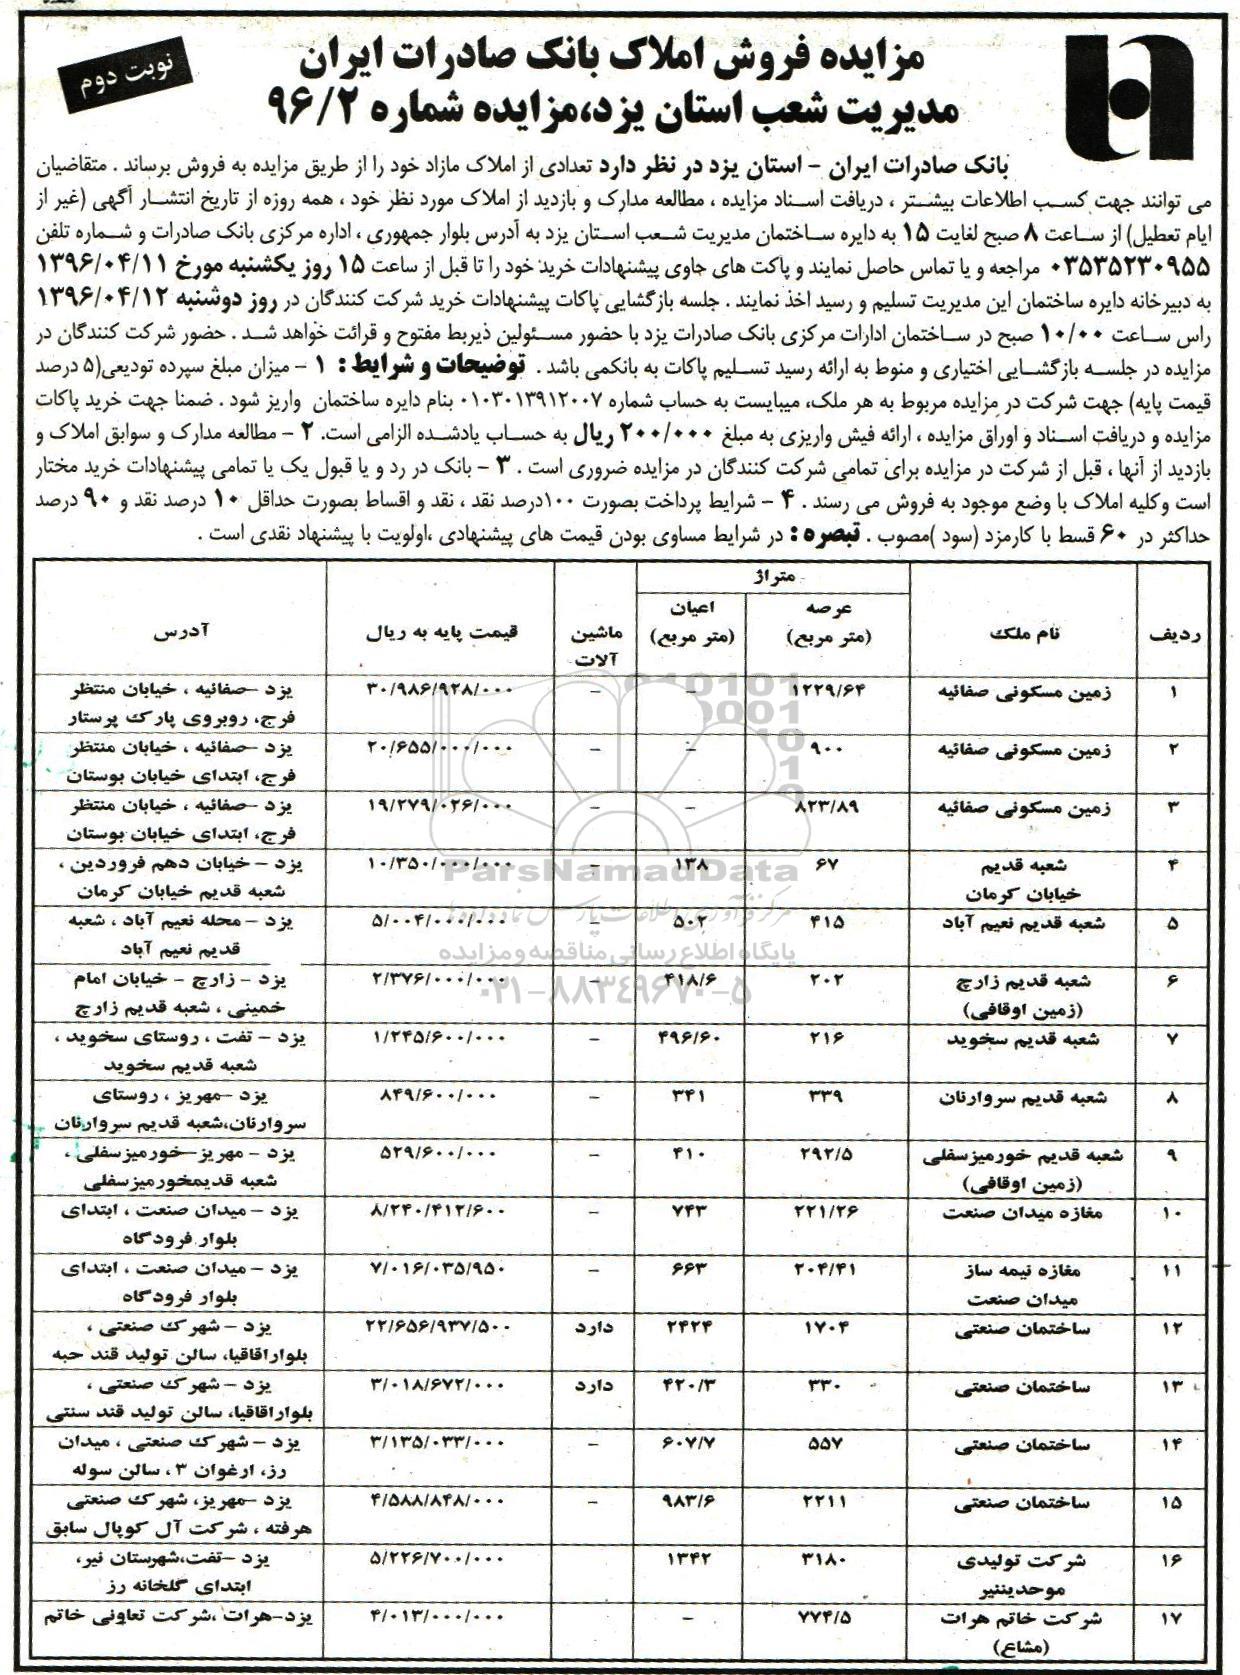 نوبت دوم
مزایده فروش املاک بانک صادرات ایران
مدیریت شعب استان یزد،مزایده شماره ۹۶/۲
بانک صادرات ایران - استان یزد در نظر دارد تعدادی از املاک مازاد خود را از طریق مزایده به فروش برساند . متقاضیان
می توانند جهت کسب اطلاعات بیشتر ، دریافت اسناد مزایده ، مطالعه مدارک و بازدید از املاک مورد نظر خود ، همه روزه از تاریخ انتشار آگهی (غیر از
ایام تعطیل) از ساعت ۸ صبح لغایت ۱۵ به دایره ساختمان مدیریت شعب استان یزد به آدرس بلوار جمهوری ، اداره مرکزی بانک صادرات و شماره تلفن
۰۳۵۳۵۲۳۰۹۵۵ مراجعه و یا تماس حاصل نمایند و پاکت های جاوی پیشنهادات خرید خود را تا قبل از ساعت ۱۵ روز یکشنبه مورخ ۱۳۹۶/۰۴/۱۱
به دبیرخانه دایره ساختمان این مدیریت تسلیم و رسید اخذ نمایند . جلسه بازگشایی پاکات پیشنهادات خرید شرکت کنندگان در روز دوشنبه ۱۳۹۶/۰۴/۱۲
راس ساعت ۱۰/۰۰ صبح در ساختمان ادارات مرکزی بانک صادرات یزد با حضور مسئولین ذیربط مفتوح و قرائت خواهد شد . حضور شرکت کنندگان در
مزایده در جلسه بازگشایی اختیاری و منوط به ارائه رسید تسلیم پاکات به بانکمی باشد . توضیحات و شرایط : ۱ - میزان مبلغ سپرده تودیعی(۵ درصد
قیمت پایه) جهت شرکت در مزایده مربوط به هر ملک، میبایست به حساب شماره ۰۱۰۳۰۱۳۹۱۲۰۰۷ بنام دایره ساختمان واریز شود . ضمنا جهت خرید پاکات
مزایده و دریافت اسناد و اوراق مزایده ، ارائه فیش واریزی به مبلغ ۲۰۰/۰۰۰ ریال به حساب یادشده الزامی است. ۲ - مطالعه مدارک و سوابق املاک و
بازدید از آنها ، قبل از شرکت در مزایده برای تمامی شرکت کنندگان در مزایده ضروری است . ۳ - بانک در رد و یا قبول یک یا تمامی پیشنهادات خرید مختار
است وکلیه املاک با وضع موجود به فروش می رسند . ۴ - شرایط پرداخت بصورت ۱۰۰درصد نقد ، نقد و اقساط بصورت حداقل ۱۰ درصد نقد و ۹۰ درصد
حداکثر در ۶۰ قسط با کارمزد (سود )مصوب . تبصره : در شرایط مساوی بودن قیمت های پیشنهادی ،اولویت با پیشنهاد نقدی است .
ردیف نام ملک متراژ عرصه (متر مربع) اعیان (متر مربع) ماشین آلات قیمت پایه به ریال آدرس
۱ زمین مسکونی صفائیه ۱۲۲۹/۶۴ - - ۳۰/۹۸۶/۹۲۸/۰۰۰ یزد -صفائیه ، خیابان منتظر
فرج، روبروی پارک پرستار
۲ زمین مسکونی صفائیه ۹۰۰ - - ۲۰/۶۵۵/۰۰۰/۰۰۰ یزد -صفائیه ، خیابان منتظر
فرج، ابتدای خیابان بوستان
۳ زمین مسکونی صفائیه ۸۲۳/۸۹ - - ۱۹/۲۷۹/۰۲۶/۰۰۰ یزد -صفائیه ، خیابان منتظر
فرج، ابتدای خیابان بوستان
۴ شعبه قدیم ۶۷ ۱۳۸ - ۱۰/۳۵۰/۰۰۰/۰۰۰ یزد - خیابان دهم فروردین ،
خیابان کرمان شعبه قدیم خیابان کرمان
۵ شعبه قدیم نعیم آباد ۴۱۵ ۵۰۲ - ۵/۰۰۴/۰۰۰/۰۰۰ یزد - محله نعیم آباد ، شعبه
قدیم نعیم آباد
۶ شعبه قدیم زارچ ۲۰۲ ۴۱۸/۶ - ۲/۳۷۶/۰۰۰/۰۰۰ یزد - زارچ - خیابان امام
(زمین اوقافی) خمینی ، شعبه قدیم زارچ
۷ شعبه قدیم سخوید ۲۱۶ ۴۹۶/۶۰ - ۱/۲۴۵/۶۰۰/۰۰۰ یزد - تفت ، روستای سخوید ،
شعبه قدیم سخوید
۸ شعبه قدیم سروارنان ۳۳۹ ۳۴۱ - ۸۴۹/۶۰۰/۰۰۰ یزد -مهریز ، روستای
سروارنان،شعبه قدیم سروارنان
۹ شعبه قدیم خورمیزسفلی ۲۹۲/۵ ۴۱۰ - ۵۲۹/۶۰۰/۰۰۰ یزد - مهریز-خورمیزسفلی ،
(زمین اوقافی) شعبه قدیمخورمیزسفلی
۱۰ مغازه میدان صنعت ۲۲۱/۲۶ ۷۴۳ - ۸/۲۴۰/۴۱۲/۶۰۰ یزد - میدان صنعت ، ابتدای
بلوار فرودگاه
۱۱ مغازه نیمه ساز ۲۰۴/۴۱ ۶۶۳ - ۷/۰۱۶/۰۳۵/۹۵۰ یزد - میدان صنعت ، ابتدای
میدان صنعت بلوار فرودگاه
۱۲ ساختمان صنعتی ۱۷۰۴ ۲۴۲۴ دارد ۲۲/۶۵۶/۹۳۷/۵۰۰ یزد - شهرک صنعتی ،
بلواراقاقیا، سالن تولید قند حبه
۱۳ ساختمان صنعتی ۳۳۰ ۴۲۰/۳ دارد ۳/۰۱۸/۶۷۲/۰۰۰ یزد - شهرک صنعتی ،
بلواراقاقیا، سالن تولید قند سنتی
۱۴ ساختمان صنعتی ۵۵۷ ۶۰۷/۷ - ۳/۱۳۵/۰۳۳/۰۰۰ یزد - شهرک صنعتی ، میدان
رز، ارغوان ۳ ، سالن سوله
۱۵ ساختمان صنعتی ۲۲۱۱ ۹۸۳/۶ - ۴/۵۸۸/۸۴۸/۰۰۰ یزد -مهریز، شهرک صنعتی
هرفته ، شرکت آل کوپال سابق
۱۶ شرکت تولیدی ۳۱۸۰ ۱۳۴۲ ۵/۲۲۶/۷۰۰/۰۰۰ یزد -تفت،شهرستان نیر،
موحدیننیر ابتدای گلخانه رز
۱۷ شرکت خاتم هرات ۷۷۴/۵ - ۴/۰۱۳/۰۰۰/۰۰۰ یزد-هرات ،شرکت تعاونی خاتم
(مشاع)
ParsNamadData
مرکز فرآوری اطلاعات پارس نماد داده ها
پایگاه اطلاع رسانی مناقصه و مزایده
۰۲۱-۸۸۳۴۹۶۷۰-۵